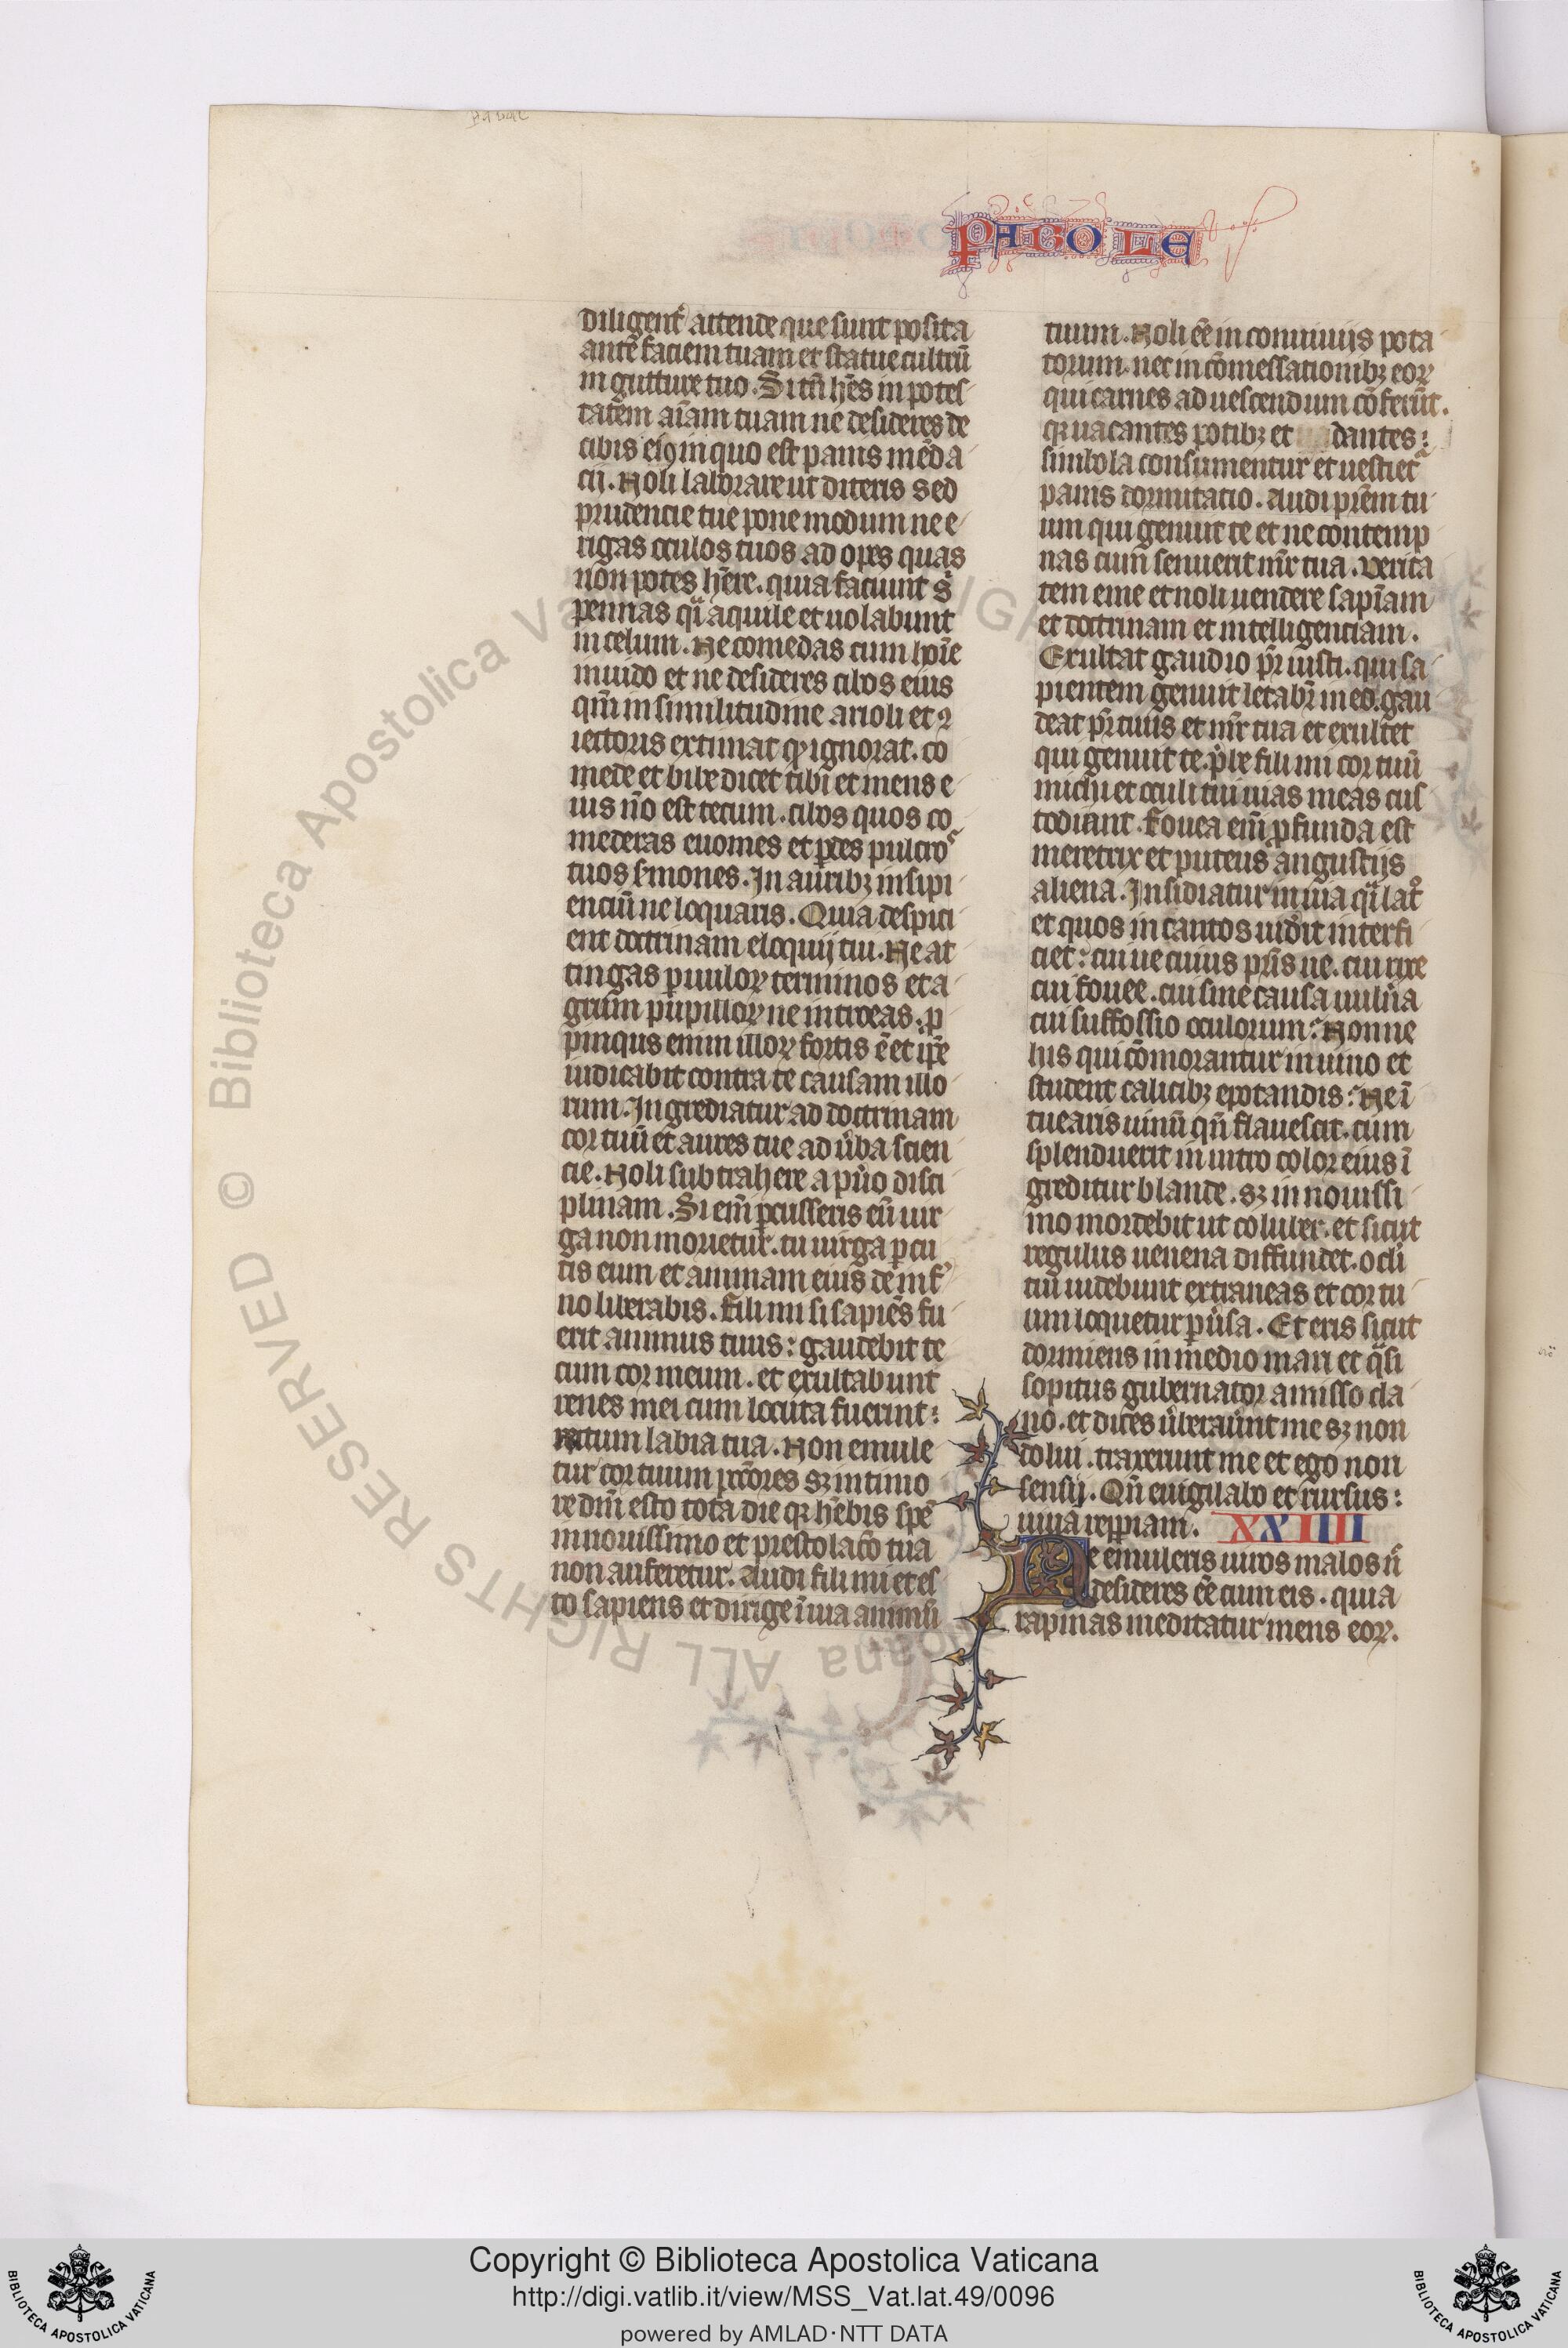 PABOLE
diligent̉ attende que sunt posita
ante faciem tuam et statue cultrū
in gutture tuo. Si tn̄ hēs in potes
tatem aīam tuam ne desideres de
cibis eiꝰ in quo est panis mēda
cii. Noli laborare ut diteris sed
prudencie tue pone modum ne e
rigas oculos tuos ad opes quas
non potes hēre. quia facient s̉
pennas qͣi aquile et uolabunt
in celum. Ne comedas cum hoīe
inuido et ne desideres cibos eius
qm̄ in similitudine arioli et ꝯ
iectoris extimat qꝫ ignorat. co
mede et bibe dicet tibi et mens e
ius nō est tecum. cibos quos co
mederas euomes et ꝑdes pulcroˢ
tuos ẜmones. In auribꝫ insipi
enciū ne loquaris. Quia despici
ent doctrinam eloquii tui. Ne at
tingas ꝑuuloꝝ terminos et a
grum pupilloꝝ ne introeas. ꝓ
pinqus enim illoꝝ fortis ē et ip̄e
iudicabit contra te causam illo
rum. Ingrediatur ad doctrinam
cor tuū et aures tue ad ůba scien
cie. Noli subtrahere a půo disci
plinam. Si em̄ ꝑcusseris eū uir
ga non morietur. tu uirga ꝑcu
tis eum et animam eius de inf̉
no liberabis. Fili mi si sapiēs fu
erit animus tuus: gaudebit te
cum cor meum. et exultabunt
renes mei cum locuta fuerint:
rectum labia tua. Non emule
tur cor tuum pc̄c̄ores sꝫ in timo
re dn̄i esto tota die qꝫ hēbis spē
in nouissimo et prestolac̄o tua
non auferetur. Audi fili mi et es
to sapiens et dirige ī uia animū
tuum. Noli eē in conuiuiis pota
torum. nec in cōmessationibꝫ eoꝝ
qui carnes ad uescendum cōferūt.
qꝫ uacantes potibꝫ et dantes:
simbola consumentur et uestietͬ
panis dormitatio. Audi prēm tu
um qui genuit te et ne contemp
nas cum senuerit mr̄ tua. Verita
tem eme et noli uendere sapīam
et doctrinam et intelligenciam.
Exultat gaudio pr̄ iusti. qui sa
pientem genuit letabr̄ in eo. gau
deat pr̄ tuus et mr̄ tua et exultet
qui genuit te. p̊be fili mi cor tuū
michi et oculi tui uias meas cus
todiant. Fouea em̄ ꝓfunda est
meretrix et puteus angustiis
aliena. Insidiatur in uia qͣi latͦ
et quos in cautos uid̉it interfi
ciet: cui ue cuius pr̄is ue. cui rixe
cui fouee. cui sine causa uuln̉a
cui suffossio oculorum: Nonne
his qui cōmorantur in uino et
student calicibꝫ epotandis: Ne ī
tuearis uinū qn̄ flauescit. cum
splenduerit in uitro color eius ī
greditur blande. sꝫ in nouissi
mo mordebit ut coluber. et sicut
regulus uenena diffundet. oculi
tui uidebunt extraneas et cor tu
um loquetur ꝑůsa. Et eris sicut
dormiens in medio mari et qͣsi
sopitus gubernator amisso cla
uo. et dices ůberaůunt me sꝫ non
dolui. traxerunt me et ego non
sensii. Qn̄ euigilabo et rursus:
uina repꝑiam. XXIIII
Ne emuleris uiros malos n̄
desideres eē cum eis. quia
rapinas meditatur mens eoꝝ.
© Biblioteca Apostolica Vaticana ALL RIGHTS RESERVED
Copyright © Biblioteca Apostolica Vaticana
http://digi.vatlib.it/view/MSS_Vat.lat.49/0096
powered by AMLAD·NTT DATA
BIBLIOTECA APOSTOLICA VATICANA
BIBLIOTECA APOSTOLICA VATICANA